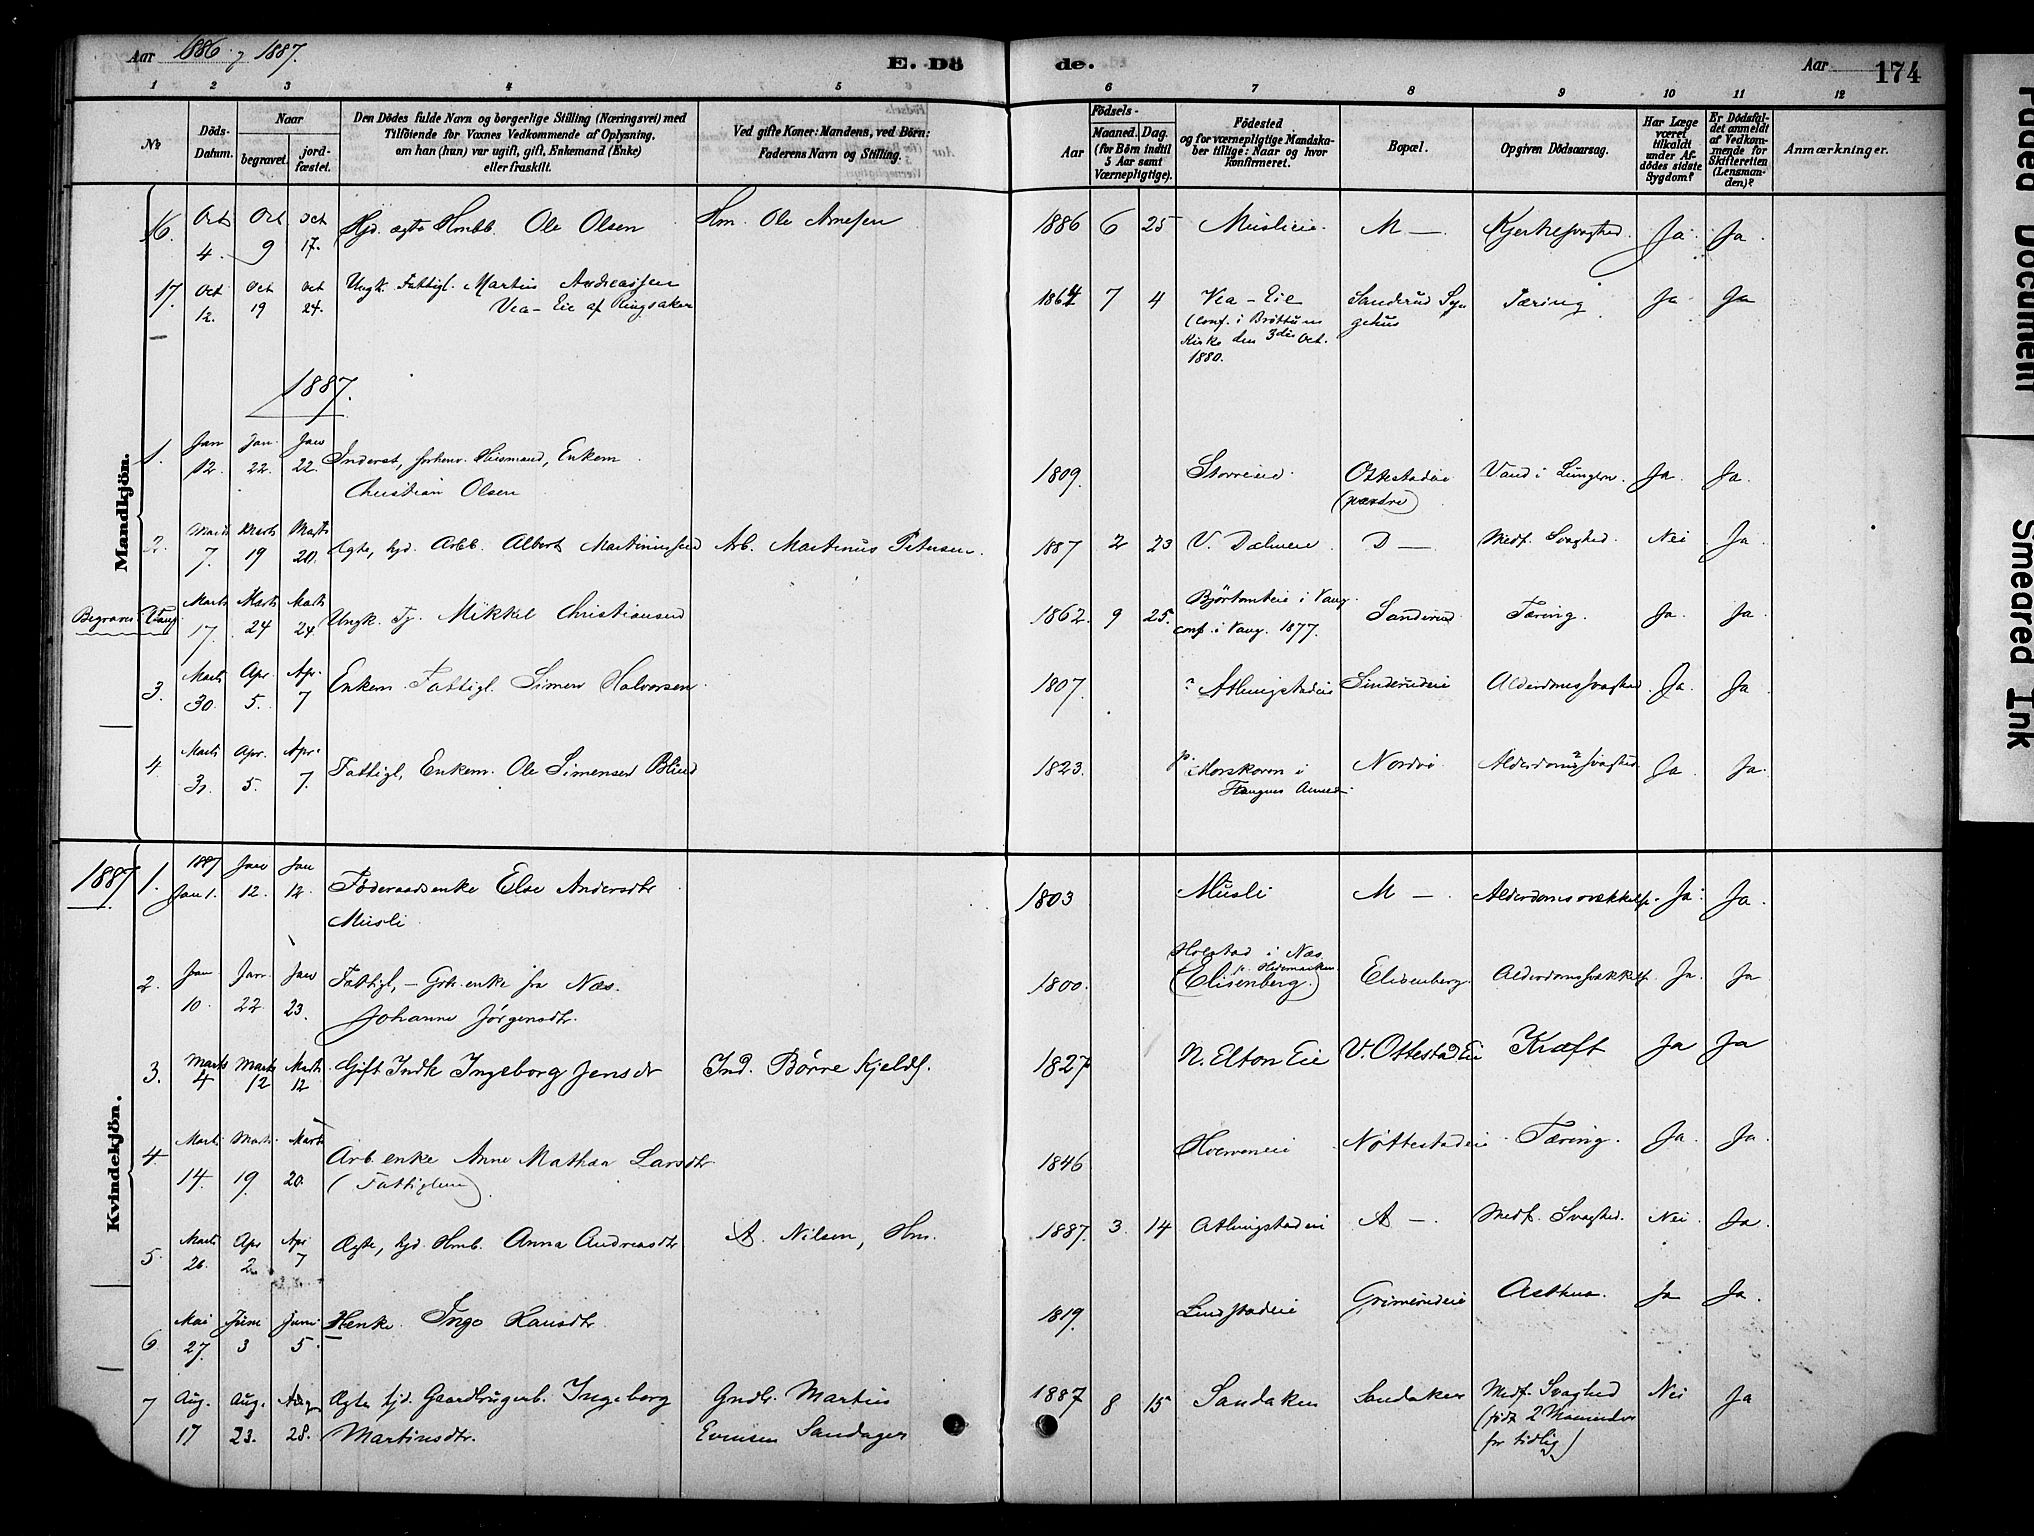 Aar 1886 og 1887.
E. Dö de.
Aar 174
1 2 3 4 5 6 7 8 9 10 11 12
No
Döds-Datum.
Naar
begravet.
jord-fæstet.
Den Dödes fulde Navn og borgerlige Stilling (Næringsvei) med
Tilföiende for Voxnes Vedkommende af Oplysning.
om han (hun) var ugift, gift, Enkemand (Enke)
eller fraskilt.
Ved gifte Koner: Mandens, ved Børn:
Faderens Navn og Stilling.
Födsels-
Aar
Maaned. Dag.
(for Börn indtil
5 Aar samt
Værnepligtige).
Födested
og for værnepligtige Mandska-
ber tillige: Naar og hvor
konfirmeret.
Bopæl.
Opgiven Dödsaarsag.
Har Læge
været
tilkaldt
under Af-
dödes sidste
Sygdom?
Er Dödsfal-
det anmeldt
af Vedkom-
mende for
Skifteretten
(Lensman-
den)?
Anmærkninger.
Mandkjön.
16. Oct 4. Oct 9 Oct 17. Hjd. ægte Hmbb. Ole Olsen Hm. Ole Arnesen 1886 6 25 Muslieie M — Kjerkesvaghed. Ja. Ja.
17. Oct 12. Oct 19 Oct 24. Ungk. Fattigl. Martin Andreassen
Vea-Eie af Ringsaker 1864 7 4 Vea-Eie
(Conf. i Brøttum
Kirke den 3die Oct.
1880. Sanderud Sy-
gehus Tæring Ja Ja
1887.
1. Jan 12. Jan. 22. Jan 22. Inderst, forhenv. Husmand, Enkem.
Christian Olsen 1809. Ottestadeie
(nordre) Vand i Lungern. Ja. Ja.
2. Marts 7. Marts 19 Marts 20. Ægte, hjd. Arbb. Albert Martinussen Arb. Martinus Petersen. 1887 2 23 V. Dælineie D — Medf. Svaghed. Nei Ja.
Begravet i Vang. Marts 17. Marts 24 Marts 24. Ungk. Tj. Mikkel Christiansen 1862. 9 25. i Vang.
conf. i Vang. 1877. Sanderud Tæring. Ja. Ja.
3. Marts 30. Apr. 5. Apr. 7 Enkem. Fattigl. Simen Halvorsen. 1807. Atlungstadeie Sinderudeie Alderdomssvaghed. Ja. Ja.
4. Marts 31. Apr. 5. Apr. 7. Fattigl, Enkem. Ole Simensen Blind 1823. Morskoven i
Nordvi Alderdomssvaghed. Ja. Ja.
Kvindekjön.
1887 1. 1887 Jan 1. Jan 12. Jan 12. Føderaadsenke Else Andersdtr
Musli. 1803 Musli M — Alderdomssvækkelse. Ja. Ja.
2. Jan 10. Jan. 22 Jan 23. Fattigl, — Grb. enke fra Næs.
Johanne Jørgensdtr. 1800. Holstad i Næs
p. Hedemarken
(Elisenberg.) Elisenberg. Alderdomssvækkelse. Ja. Ja
3. Marts 4 Marts 12 Marts 12 Gift Indk Ingeborg Jensdr Ind. Børre Kjelds. 1827 N. Elton Eie V. Ottestad Ei Kræft Ja Ja
4. Marts 14. Marts 19. Marts 20. Arb. enke Anne Mathea Larsdtr.
(Fattiglem) 1846 Nøttestadeie Tæring. Ja. Ja.
5. Marts 26. Apr 2. Apr 7 Ægte, hjd. Hmb. Anna Andreasdtr A. Nilsen, Hm. 1887. 3. 14 Atlungstadeie A —. Medf. Svaghed. Nei. Ja.
6. Mai 27. Juni 3 Juni 5. Henke. Inge Hansdtr. 1819. Lundstadeie Grimerudeie Asthma. Ja Ja.
7 Aug. 17 Aug. 23. Aug. 28. Ægte hjd. Gaardbrugerb. Ingeborg
Martinsdtr. Grdbr. Martius
Evensen Sandager 1887 8 15 Sandaker Sandaker Medf. Svaghed
(født 2 Maaneder
for tidlig) Nei Ja
Faded Document
Smeared Ink